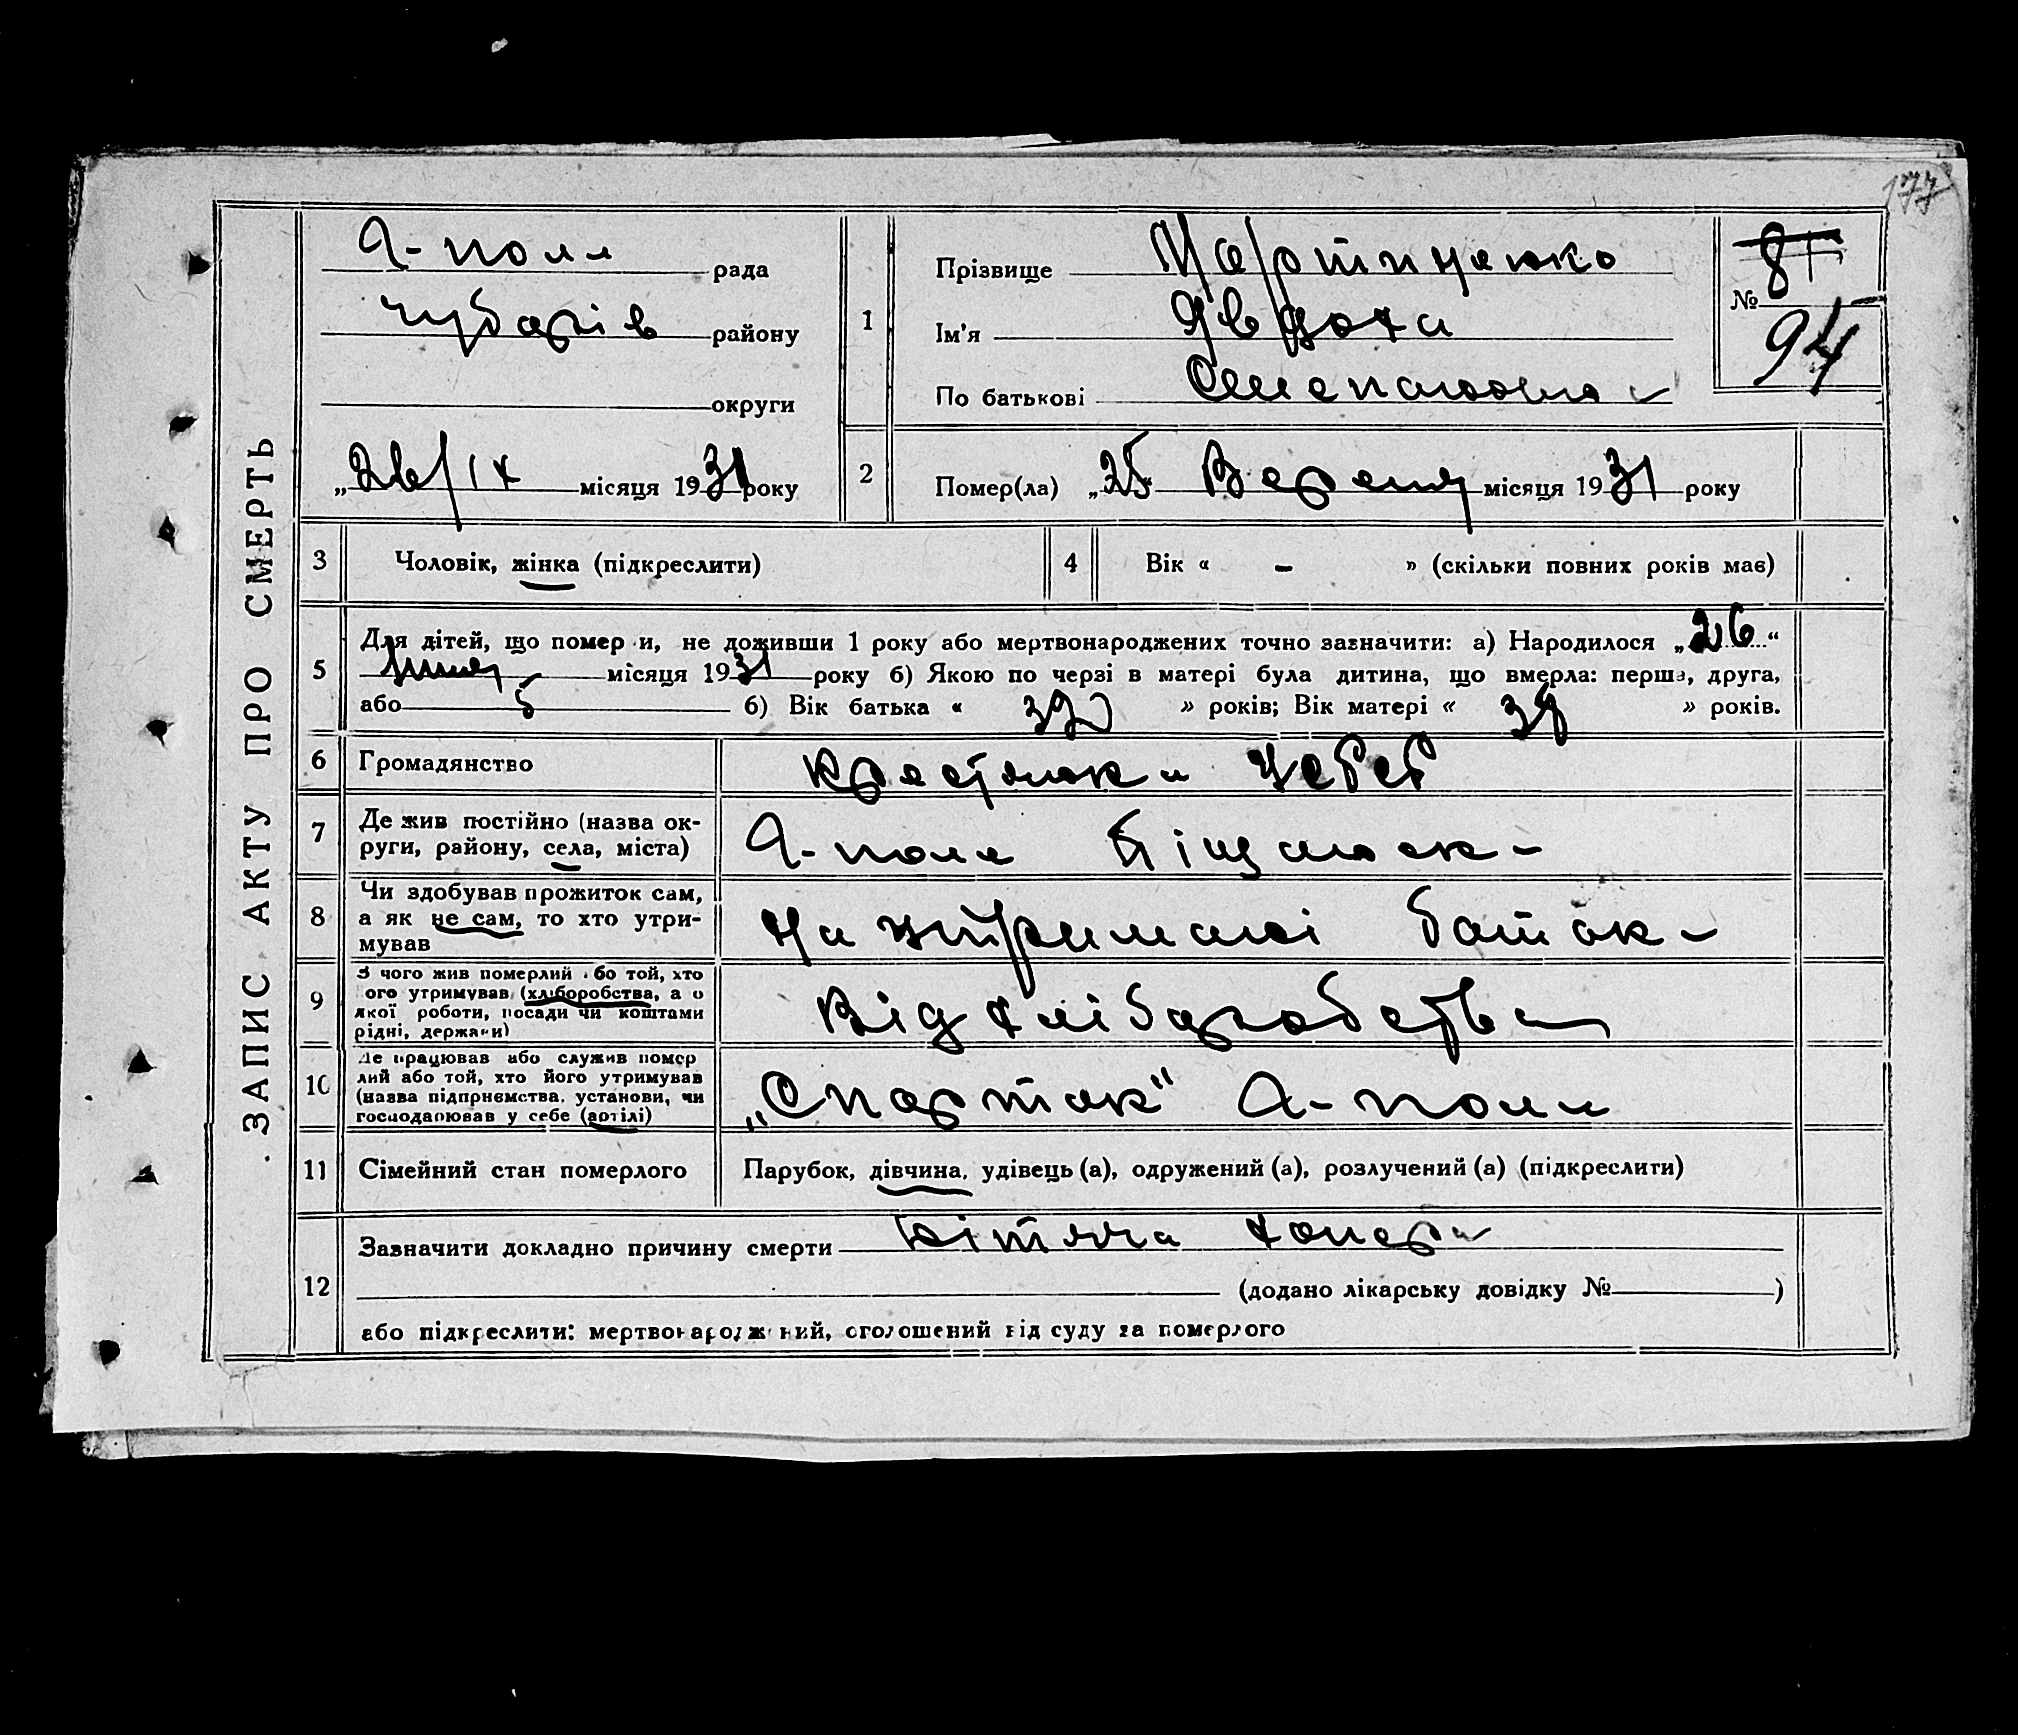 177
ЗАПИС АКТУ ПРО СМЕРТЬ
А-полл рада
Чубарів району
округи
„26/IX місяця 1931 року
1
Прізвище Мартиненко
Ім'я Явдоха
По батькові Степановна
№ 81
94
2
Помер(ла) „25" Вересня місяця 1931 року
3 Чоловік, жінка (підкреслити)
4 Вік « - » (скільки повних років має)
5 Для дітей, що померли, не доживши 1 року або мертвонароджених точно зазначити: а) Народилося „26"
липня місяця 1931 року б) Якою по черзі в матері була дитина, що вмерла: перша, друга,
або 5 б) Вік батька « 39 » років; Вік матері « 38 » років.
6 Громадянство
7 Де жив постійно (назва ок-
руги, району, села, міста)
А-полл
8 Чи здобував прожиток сам,
а як не сам, то хто утри-
мував
на утриманні батьк-
9 З чого жив померлий або той, хто
ого утримував (хліборобства, а о
якої роботи, посади чи коштами
рідні, держави)
Від хліборобства
10 Де працював або служив помер
лий або той, хто його утримував
(назва підприємства, установи, чи
господарював у себе (артілі)
„Спартак" А-полл
11 Сімейний стан померлого
Парубок, дівчина, удівець (а), одружений (а), розлучений (а) (підкреслити)
12
Зазначити докладно причину смерти Дітяча холера
(додано лікарську довідку № )
або підкреслити: мертвонароджений, оголошений від суду за померлого